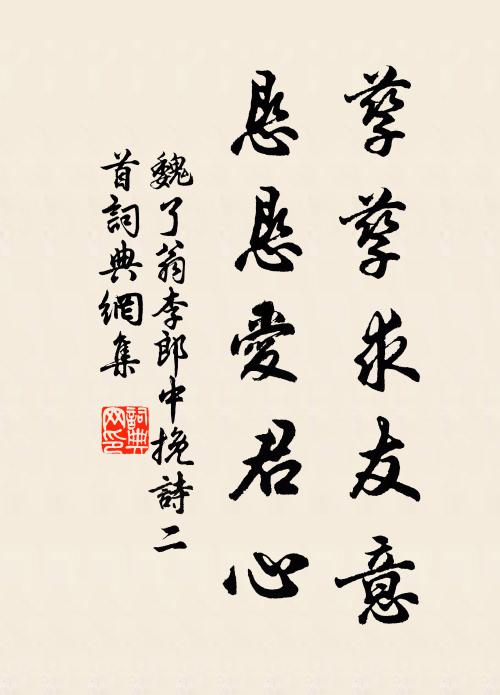 孳孳求友意
恳恳愛君心
魏了翁李郎中挽詩二
首詞典網集
詞典网印